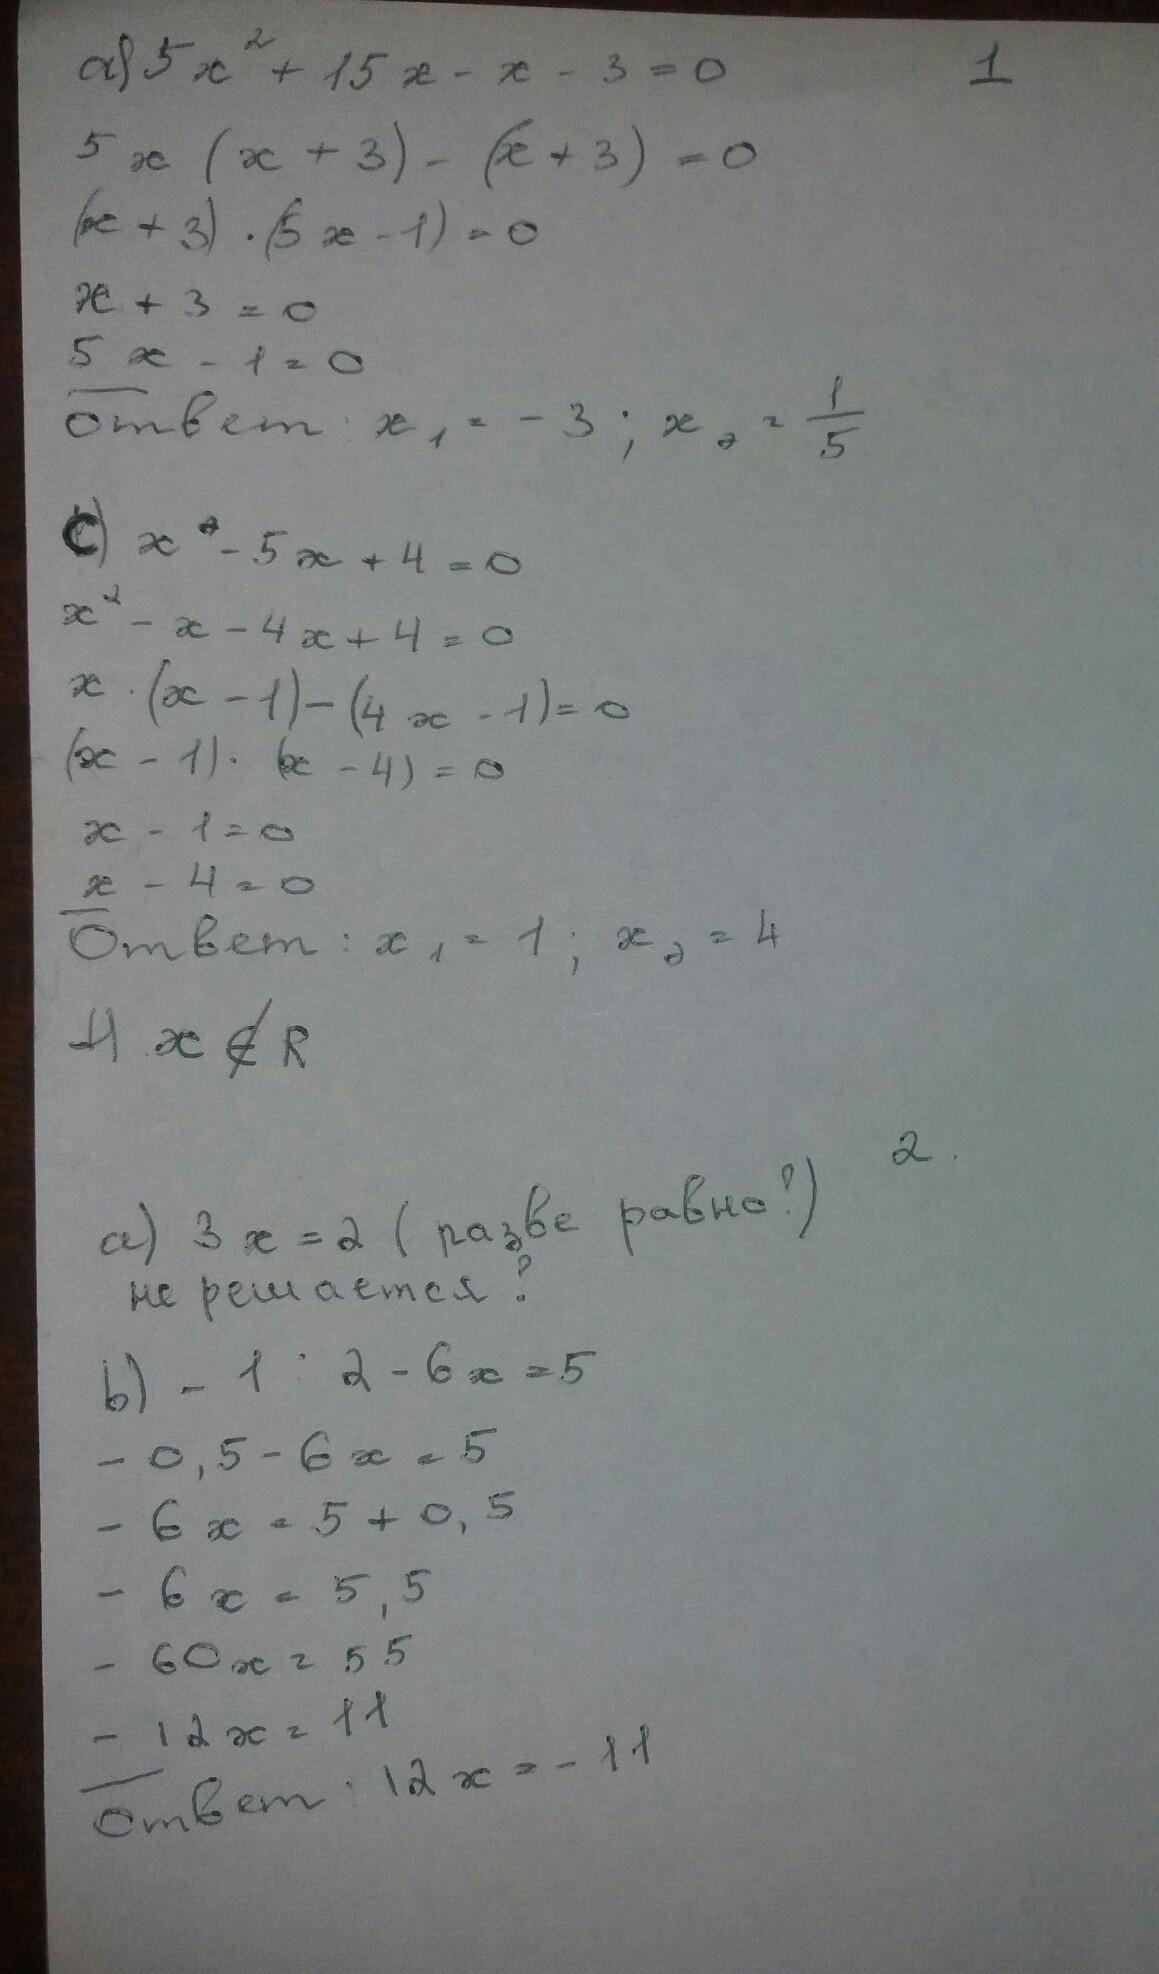 a) 5x² + 15x - x - 3 = 0
1
5x (x + 3) - (x + 3) = 0
(x + 3) · (5x - 1) = 0
x + 3 = 0
5x - 1 = 0
Ответ: x₁ = - 3 ; x₂ = 1/5
c) x² - 5x + 4 = 0
x² - x - 4x + 4 = 0
x · (x - 1) - (4x - 1) = 0
(x - 1) · (x - 4) = 0
x - 1 = 0
x - 4 = 0
Ответ: x₁ = 1 ; x₂ = 4
x ∉ R
2.
a) 3x = 2 ( разве равно?)
не решается?
b) - 1 : 2 - 6x = 5
- 0,5 - 6x = 5
- 6x = 5 + 0,5
- 6x = 5,5
- 60x = 55
- 12x = 11
Ответ: 12x = - 11